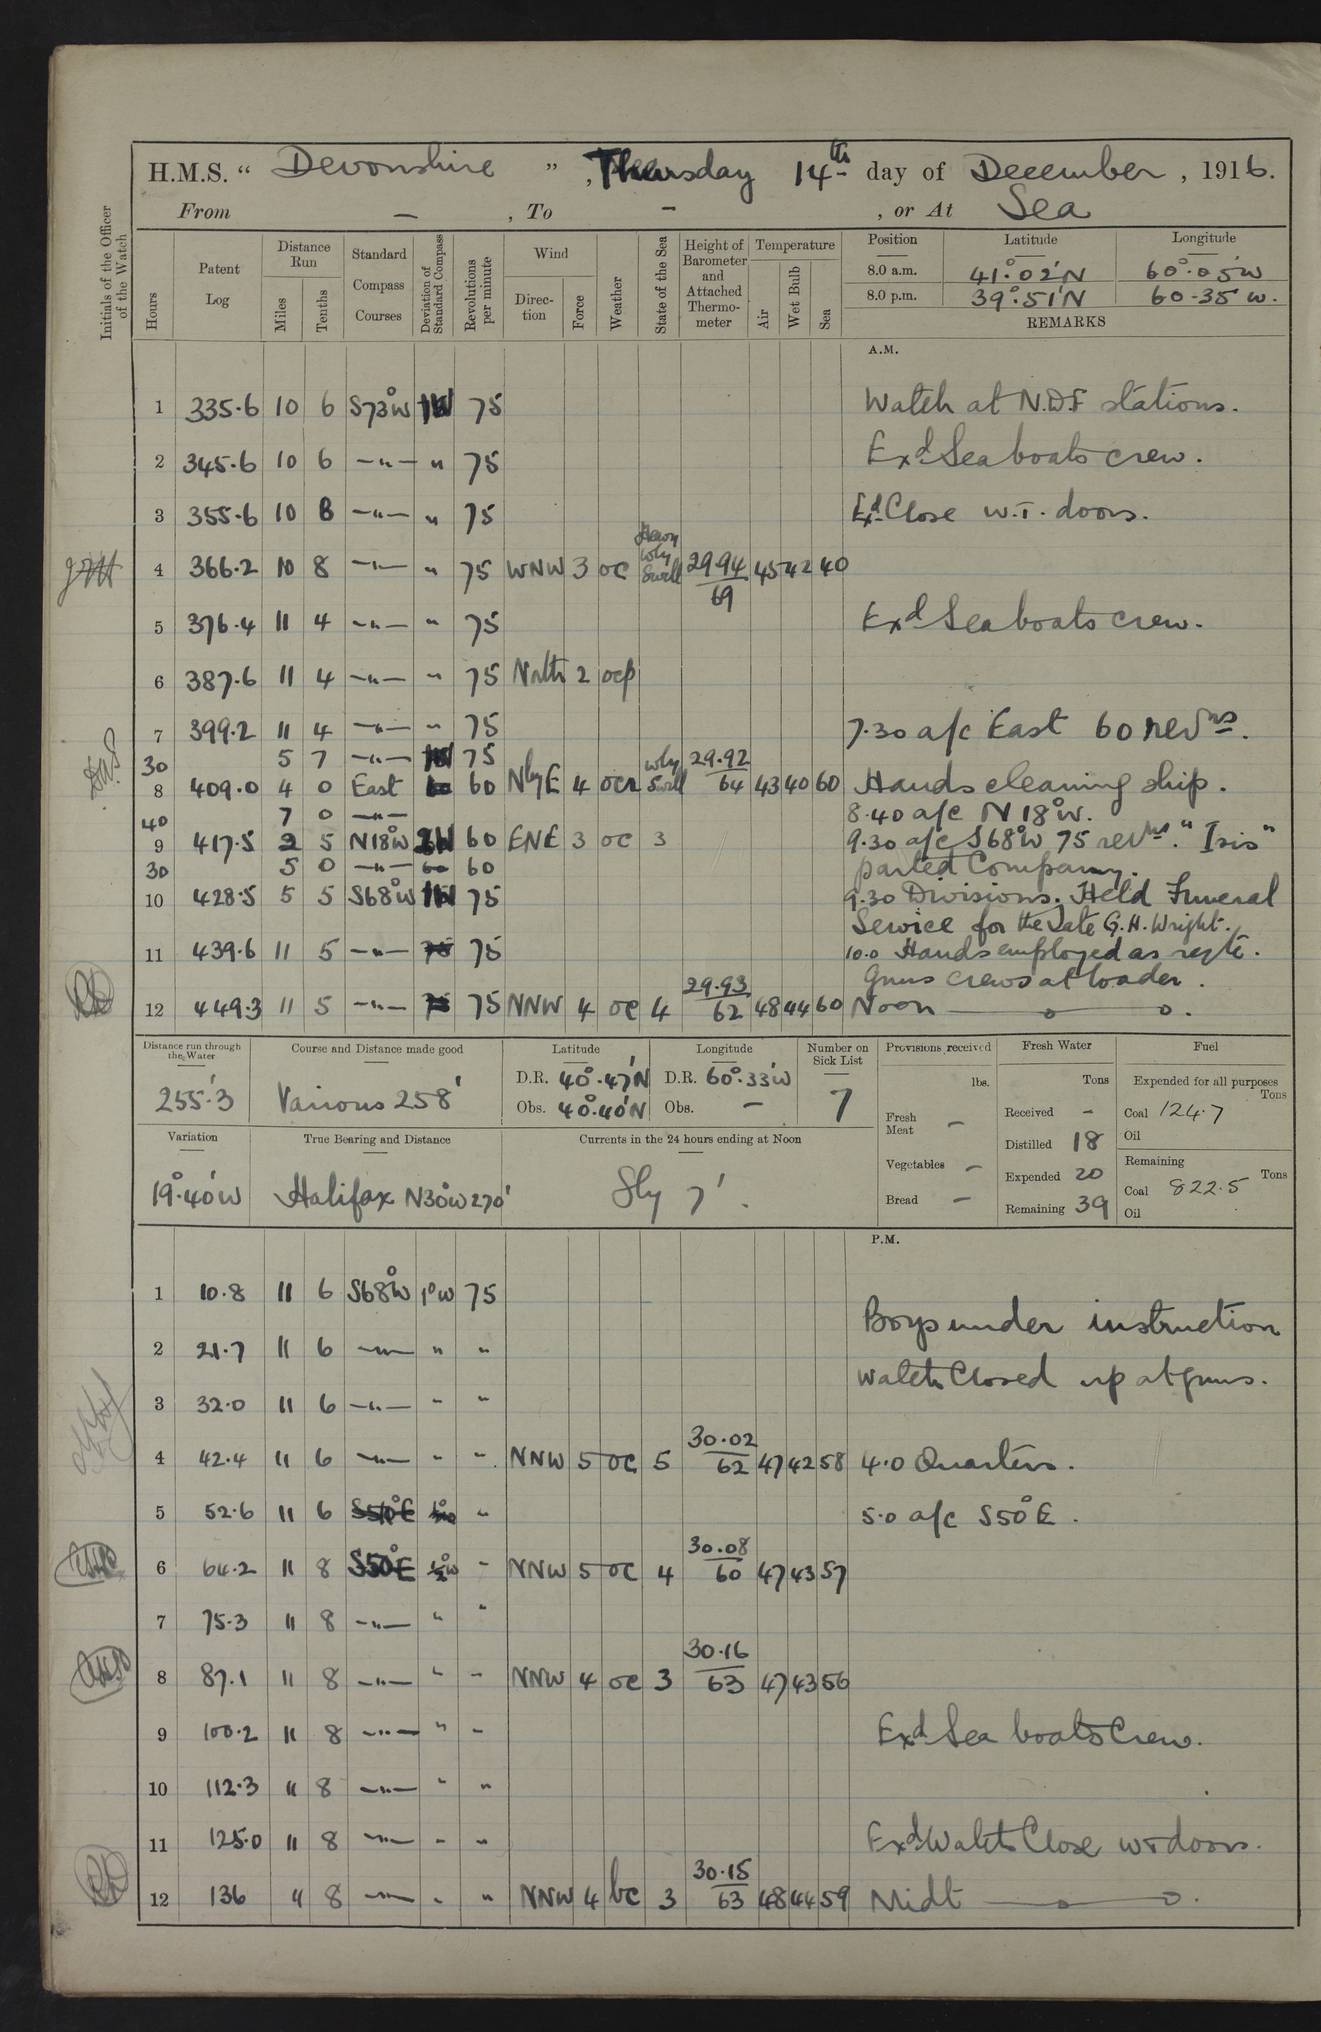 H.M.S. “ Devonshire ” , Thursday 14th day of December , 1916.
From — , To - , or At Sea
Initials of the Officer of the Watch
Hours
Patent Log
Distance Run
Miles
Tenths
Standard Compass Courses
Deviation of Standard Compass
Revolutions per minute
Wind
Direction
Force
Weather
State of the Sea
Height of Barometer and Attached Thermometer
Temperature
Air
Wet Bulb
Sea
Position Latitude Longitude
8.0 a.m. 41°.02'N 60°.05'W
8.0 p.m. 39°.51'N 60.35'W.
REMARKS
A.M.
1 335.6 10 6 S73°W 75 Watch at N.D.F stations.
2 345.6 10 6 —"— " 75 Exd Sea boats crew.
3 355.6 10 8 —"— " 75 Exd Close W.T. doors.
4 366.2 10 8 —"— " 75 WNW 3 oc Heavy Wly Swell 29.94 69 45 42 40
5 376.4 11 4 —"— " 75 Exd Sea boats crew.
6 387.6 11 4 —"— " 75 Nrth 2 ocp
7 399.2 11 4 —"— " 75 7.30 a/c East 60 revns.
30 5 7 —"— 75
8 409.0 4 0 East 60 NbyE 4 ocr Wly Swell 29.92 64 43 40 60 Hands cleaning ship.
40 7 0 —"— 8.40 a/c N18°W.
9 417.5 2 5 N18°W 60 ENE 3 oc 3 9.30 a/c S68°W 75 revns. "Iris"
30 5 0 —"— 60 parted Company.
10 428.5 5 5 S68°W 75 9.30 Divisions. Held Funeral
Service for the Late G.H. Wright.
11 439.6 11 5 —"— 75 10.0 Hands employed as reqte.
Guns crews at loader.
12 449.3 11 5 —"— 75 NNW 4 oc 4 29.93 62 48 44 60 Noon
Distance run through the Water
255'.3
Course and Distance made good
Various 258'
Latitude
D.R. 40°.47'N
Obs. 40°.40'N
Longitude
D.R. 60°.33'W
Obs. —
Number on Sick List
7
Provisions received
lbs.
Fresh Meat —
Vegetables —
Bread —
Fresh Water
Tons
Received -
Distilled 18
Expended 20
Remaining 39
Fuel
Expended for all purposes
Tons
Coal 124.7
Oil
Remaining
Tons
Coal 822.5
Oil
Variation
19°.40'W
True Bearing and Distance
Halifax N30°W 270'
Currents in the 24 hours ending at Noon
Sly 7'.
P.M.
1 10.8 11 6 S68°W 1°W 75
Boys under instruction
2 21.7 11 6 —"— " "
Watch Closed up at guns.
3 32.0 11 6 —"— " "
4 42.4 11 6 —"— " " NNW 5 oc 5 30.02 62 47 42 58 4.0 Quarters.
5 52.6 11 6 " 5.0 a/c S50°E.
6 64.2 11 8 S50°E ½°W " NNW 5 oc 4 30.08 60 47 43 57
7 75.3 11 8 —"— " "
8 87.1 11 8 —"— " " NNW 4 oc 3 30.16 63 47 43 56
9 100.2 11 8 —"— " " Exd Sea boats Crew.
10 112.3 11 8 —"— " "
11 125.0 11 8 —"— " " Exd Watch Close WT doors.
12 136 " 8 —"— " " NNW 4 bc 3 30.15 63 48 44 59 Midt